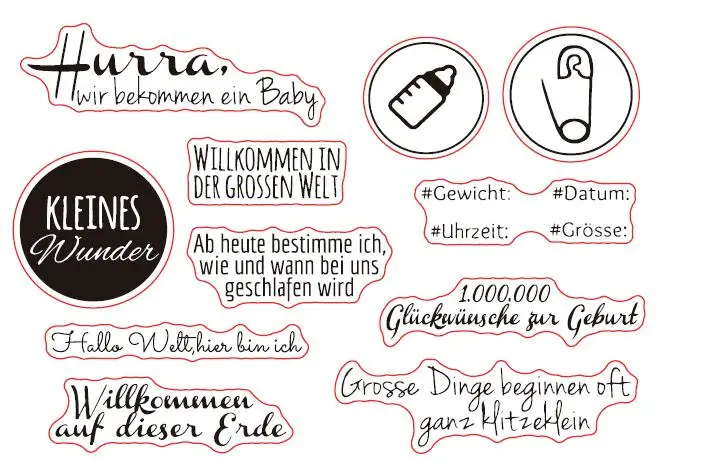 Hurra,
wir bekommen ein Baby
WILLKOMMEN IN
DER GROSSEN WELT
#Gewicht: #Datum:
#Uhrzeit: #Grösse:
KLEINES
Wunder
Ab heute bestimme ich,
wie und wann bei uns
geschlafen wird
1.000,000
Glückwünsche zur Geburt
Hallo Welt,hier bin ich
Grosse Dinge beginnen oft
ganz klitzeklein
Willkommen
auf dieser Erde